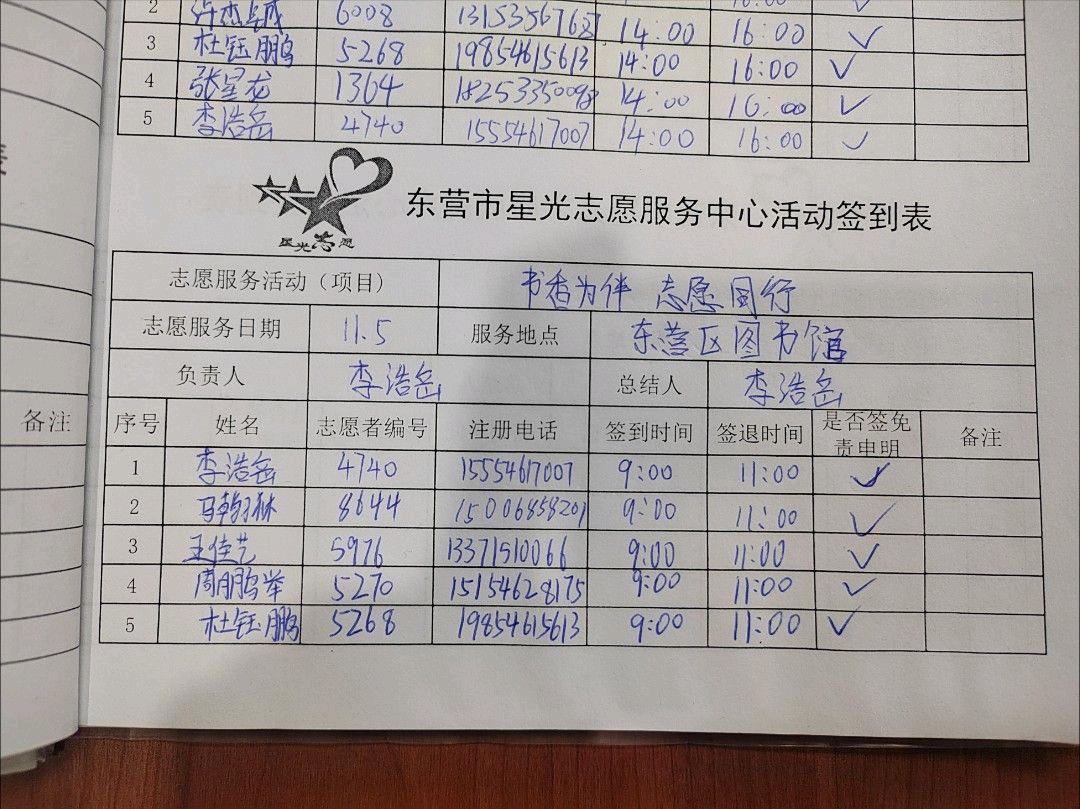 2 6008 13153556768 14:00 16:00 ✓
3 杜钰鹏 5268 19854615613 14:00 16:00 ✓
4 张星龙 1364 18253350098 14:00 16:00 ✓
5 李浩岳 4740 15554617007 14:00 16:00 ✓
星光志愿
东营市星光志愿服务中心活动签到表
志愿服务活动（项目） 书香为伴 志愿同行
志愿服务日期 11.5 服务地点 东营区图书馆
负责人 李浩岳 总结人 李浩岳
备注
序号 姓名 志愿者编号 注册电话 签到时间 签退时间 是否签免责申明 备注
1 李浩岳 4740 15554617007 9:00 11:00 ✓
2 马翰林 8644 15006858201 9:00 11:00 ✓
3 王佳艺 5976 13371510066 9:00 11:00 ✓
4 周鹏举 5270 15154628175 9:00 11:00 ✓
5 杜钰鹏 5268 19854615613 9:00 11:00 ✓